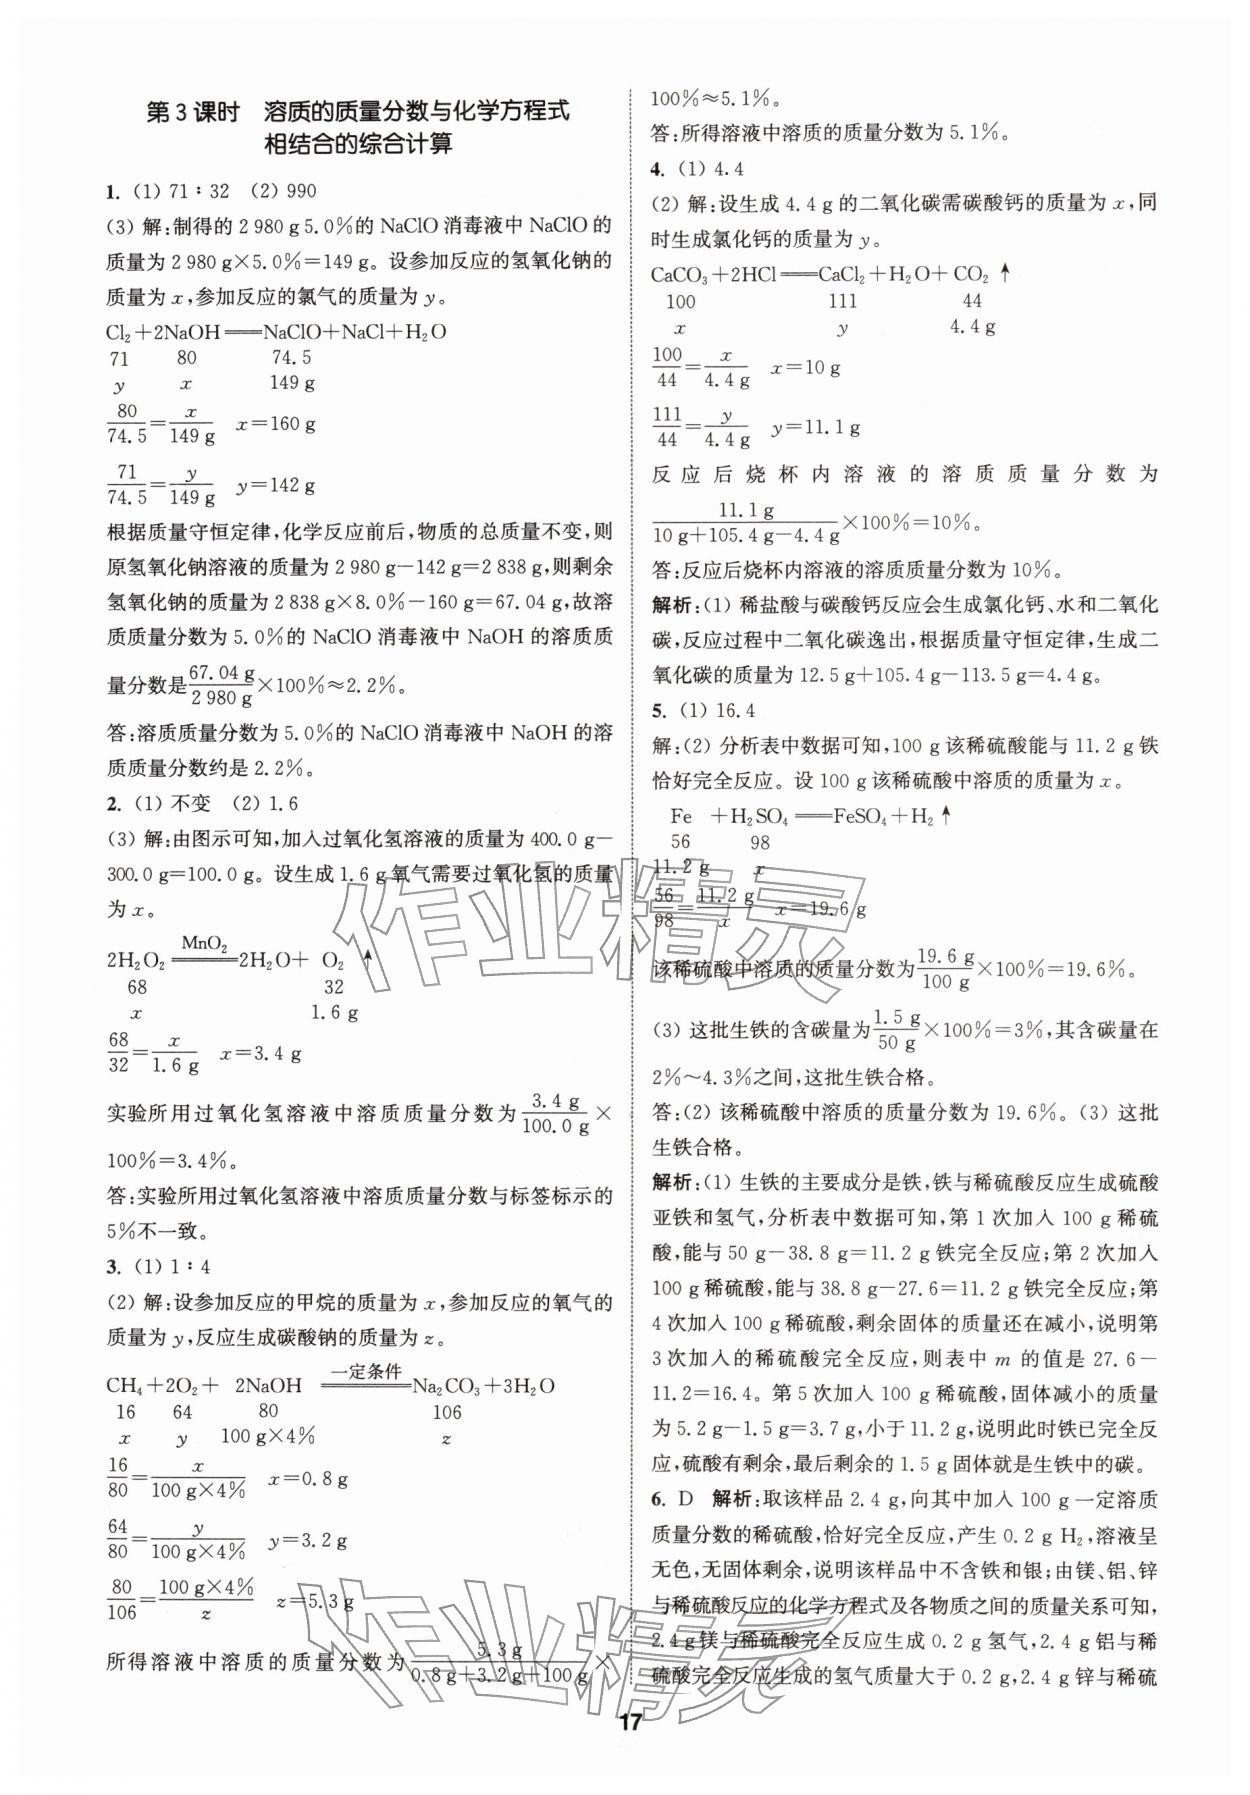 第3课时　溶质的质量分数与化学方程式
相结合的综合计算
1. (1) 71∶32　(2) 990
(3) 解:制得的2 980 g 5.0%的NaClO消毒液中NaClO的
质量为2 980 g×5.0%=149 g。设参加反应的氢氧化钠的
质量为x,参加反应的氯气的质量为y。
Cl₂+2NaOH══NaClO+NaCl+H₂O
71　80　74.5
y　x　149 g
80/74.5=x/149 g　x=160 g
71/74.5=y/149 g　y=142 g
根据质量守恒定律,化学反应前后,物质的总质量不变,则
原氢氧化钠溶液的质量为2 980 g-142 g=2 838 g,则剩余
氢氧化钠的质量为2 838 g×8.0%-160 g=67.04 g,故溶
质质量分数为5.0%的NaClO消毒液中NaOH的溶质质
量分数是67.04 g/2 980 g×100%≈2.2%。
答:溶质质量分数为5.0%的NaClO消毒液中NaOH的溶
质质量分数约是2.2%。
2. (1) 不变　(2) 1.6
(3) 解:由图示可知,加入过氧化氢溶液的质量为400.0 g-
300.0 g=100.0 g。设生成1.6 g氧气需要过氧化氢的质量
为x。
2H₂O₂ MnO₂══ 2H₂O+ O₂ ↑
68　32
x　1.6 g
68/32=x/1.6 g　x=3.4 g
实验所用过氧化氢溶液中溶质质量分数为3.4 g/100.0 g×
100%=3.4%。
答:实验所用过氧化氢溶液中溶质质量分数与标签标示的
5%不一致。
3. (1) 1∶4
(2) 解:设参加反应的甲烷的质量为x,参加反应的氧气的
质量为y,反应生成碳酸钠的质量为z。
CH₄+2O₂+ 2NaOH 一定条件══ Na₂CO₃+3H₂O
16　64　80　106
x　y　100 g×4%　z
16/80=x/100 g×4%　x=0.8 g
64/80=y/100 g×4%　y=3.2 g
80/106=100 g×4%/z　z=5.3 g
所得溶液中溶质的质量分数为5.3 g/0.8 g+3.2 g+100 g×
100%≈5.1%。
答:所得溶液中溶质的质量分数为5.1%。
4. (1) 4.4
(2) 解:设生成4.4 g的二氧化碳需碳酸钙的质量为x,同
时生成氯化钙的质量为y。
CaCO₃+2HCl══CaCl₂+H₂O+ CO₂ ↑
100　111　44
x　y　4.4 g
100/44=x/4.4 g　x=10 g
111/44=y/4.4 g　y=11.1 g
反应后烧杯内溶液的溶质质量分数为
11.1 g/10 g+105.4 g-4.4 g×100%=10%。
答:反应后烧杯内溶液的溶质质量分数为10%。
解析:(1) 稀盐酸与碳酸钙反应会生成氯化钙、水和二氧化
碳,反应过程中二氧化碳逸出,根据质量守恒定律,生成二
氧化碳的质量为12.5 g+105.4 g-113.5 g=4.4 g。
5. (1) 16.4
解:(2) 分析表中数据可知,100 g该稀硫酸能与11.2 g铁
恰好完全反应。设100 g该稀硫酸中溶质的质量为x。
Fe +H₂SO₄══FeSO₄+H₂↑
56　98
11.2 g　x
56/98=11.2 g/x　x=19.6 g
该稀硫酸中溶质的质量分数为19.6 g/100 g×100%=19.6%。
(3) 这批生铁的含碳量为1.5 g/50 g×100%=3%,其含碳量在
2%~4.3%之间,这批生铁合格。
答:(2) 该稀硫酸中溶质的质量分数为19.6%。(3) 这批
生铁合格。
解析:(1) 生铁的主要成分是铁,铁与稀硫酸反应生成硫酸
亚铁和氢气,分析表中数据可知,第1次加入100 g稀硫
酸,能与50 g-38.8 g=11.2 g铁完全反应;第2次加入
100 g稀硫酸,能与38.8 g-27.6=11.2 g铁完全反应;第
4次加入100 g稀硫酸,剩余固体的质量还在减小,说明第
3次加入的稀硫酸完全反应,则表中m的值是27.6-
11.2=16.4。第5次加入100 g稀硫酸,固体减小的质量
为5.2 g-1.5 g=3.7 g,小于11.2 g,说明此时铁已完全反
应,硫酸有剩余,最后剩余的1.5 g固体就是生铁中的碳。
6. D　解析:取该样品2.4 g,向其中加入100 g一定溶质
质量分数的稀硫酸,恰好完全反应,产生0.2 g H₂,溶液呈
无色,无固体剩余,说明该样品中不含铁和银;由镁、铝、锌
与稀硫酸反应的化学方程式及各物质之间的质量关系可知,
2.4 g镁与稀硫酸完全反应生成0.2 g氢气,2.4 g铝与稀
硫酸完全反应生成的氢气质量大于0.2 g,2.4 g锌与稀硫
17
作业精灵
作业精灵